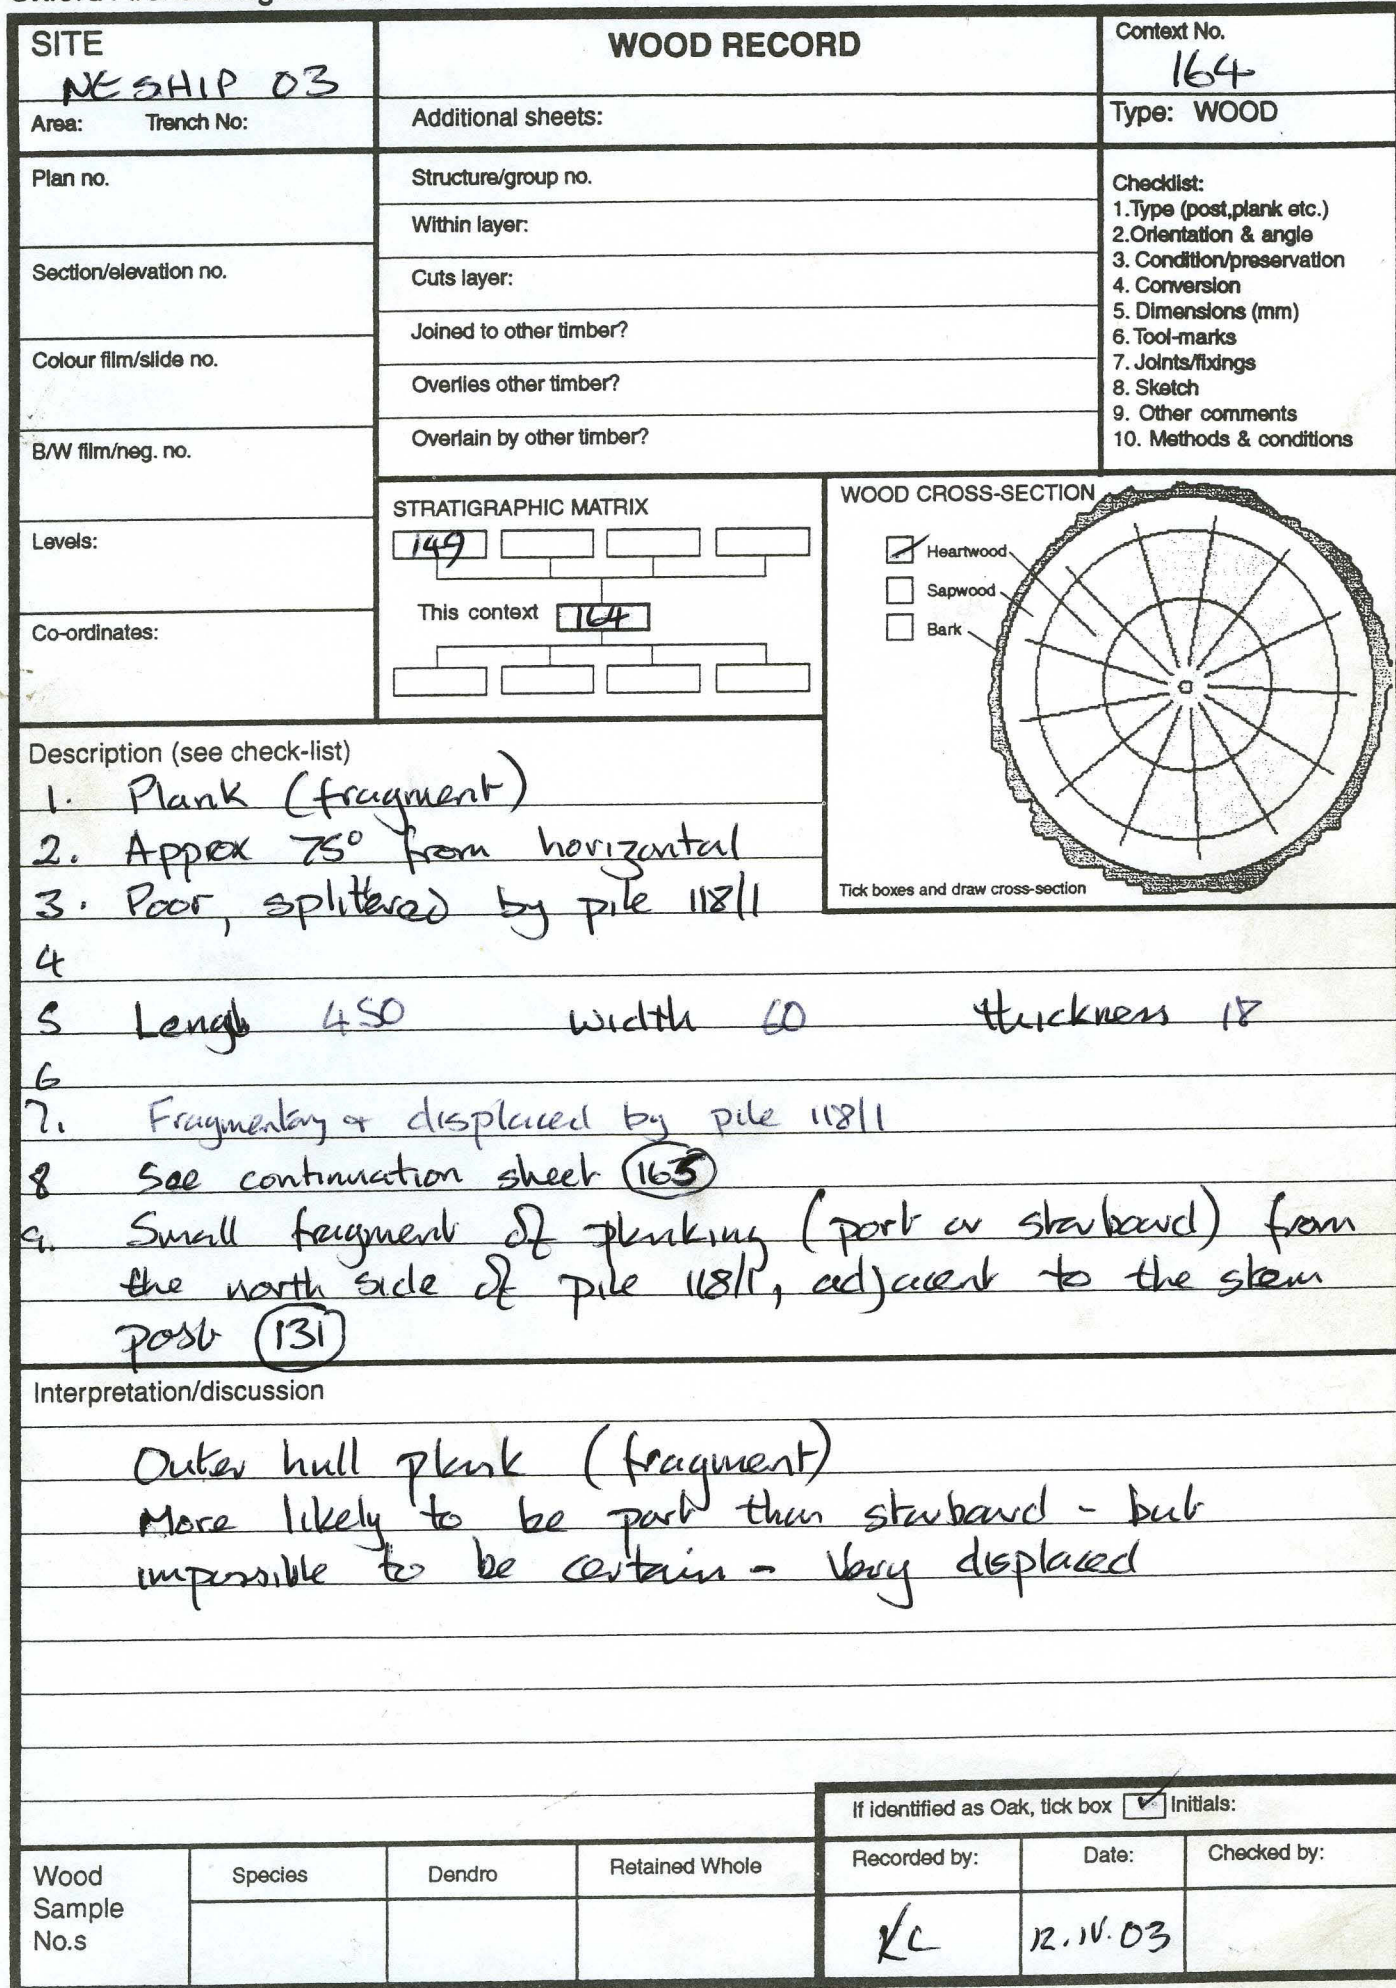 SITE
NESHIP 03
WOOD RECORD
Context No.
164
Area: Trench No:
Additional sheets:
Type: WOOD
Plan no.
Structure/group no.
Within layer:
Section/elevation no.
Cuts layer:
Joined to other timber?
Colour film/slide no.
Overlies other timber?
Overlain by other timber?
B/W film/neg. no.
Checklist:
1.Type (post,plank etc.)
2.Orientation & angle
3. Condition/preservation
4. Conversion
5. Dimensions (mm)
6. Tool-marks
7. Joints/fixings
8. Sketch
9. Other comments
10. Methods & conditions
Levels:
Co-ordinates:
STRATIGRAPHIC MATRIX
149
This context 164
WOOD CROSS-SECTION
Heartwood
Sapwood
Bark
Tick boxes and draw cross-section
Description (see check-list)
1. Plank (fragment)
2. Approx 75° from horizontal
3. Poor, splittered by pile 118/1
4
5 Length 450 width 60 thickness 18
6
7. Fragmentary & displaced by pile 118/1
8 See continuation sheet 165
9. Small fragment of planking (port or starboard) from
the north side of pile 118/1, adjacent to the stem
post 131
Interpretation/discussion
Outer hull plank (fragment)
More likely to be port than starboard - but
impossible to be certain - Very displaced
If identified as Oak, tick box Initials:
Wood
Sample
No.s
Species
Dendro
Retained Whole
Recorded by:
KC
Date:
12.IV.03
Checked by: